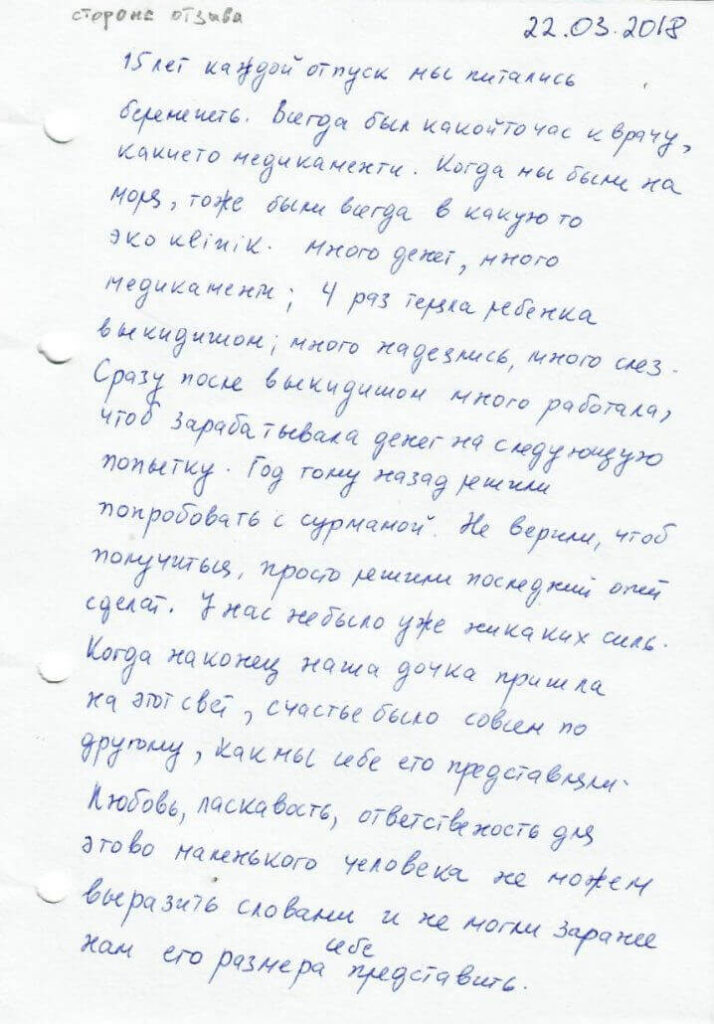 сторона отзыва
22.03.2018
15 лет каждой отпуск мы питались
беременеть. Всегда был какойто час к врачу,
какието медикаменти. Когда мы были на
моря, тоже были всегда в какую то
эко кlinik. много денег, много
медикаменти; 4 раз теряла ребенка
выкидишом; много надеялись, много слез.
Сразу после выкидишом много работала,
чтоб зарабатывала денег на следующую
попытку. Год тому назад решили
попробовать с сурмамой. Не верили, чтоб
получиться, просто решили последний
сделат. У нас небыло уже никаких силь.
Когда наконец наша дочка пришла
на этот свет, счастье было совсем по
другому, как мы себе ето представляли.
Любовь, ласкавость, ответствежость для
этово маленького человека не можем
выразить словами и не могли заранее
нам его размера себе представить.